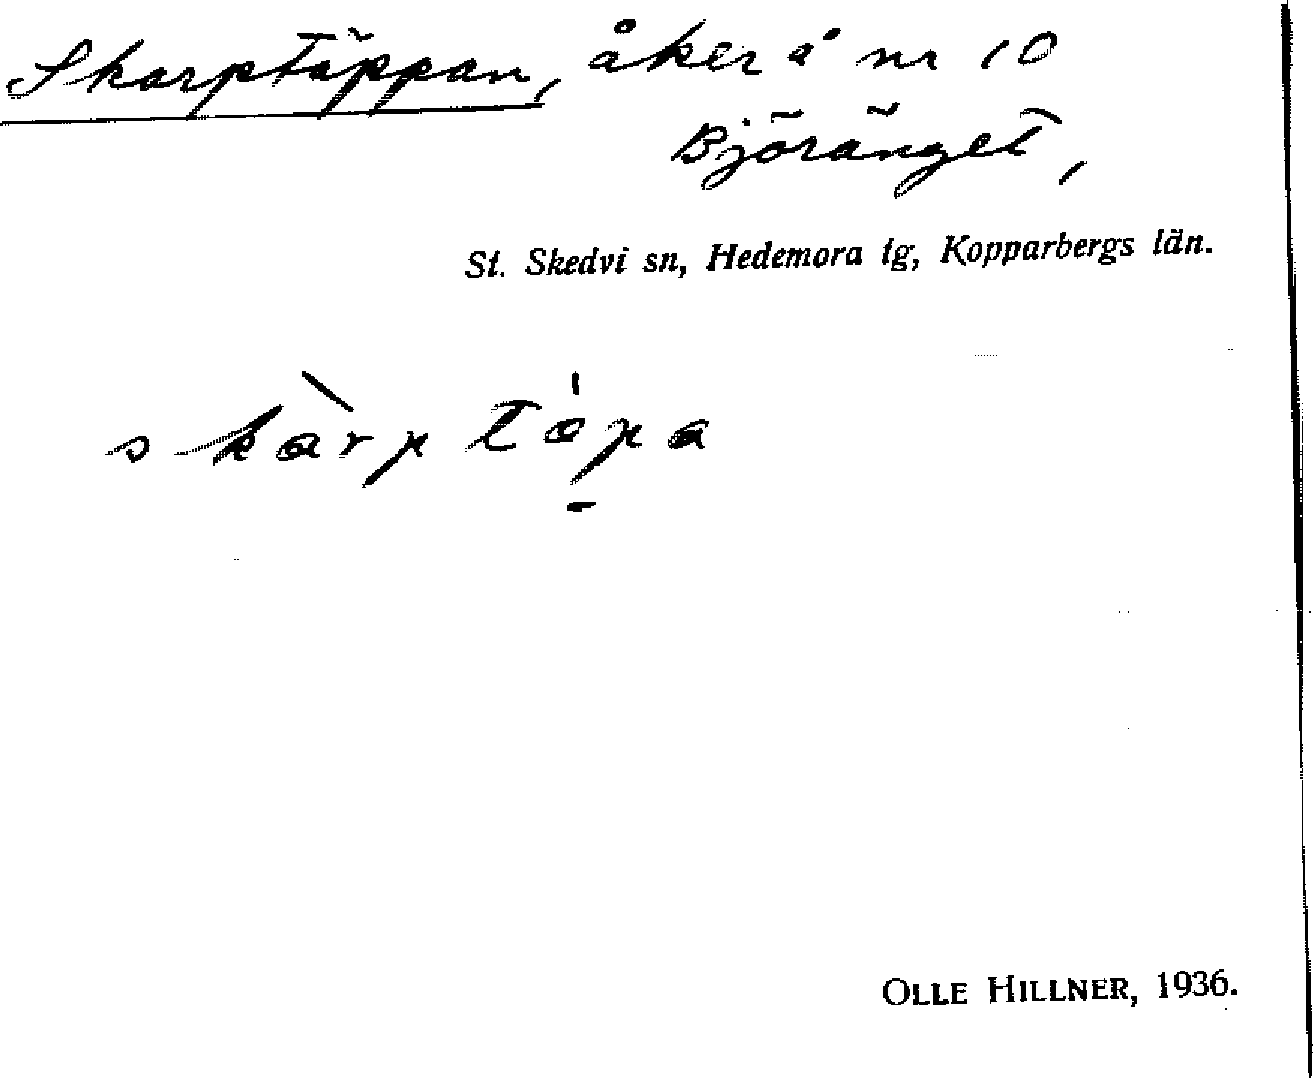 Skarptäppan, åker å nr 10
Björänget,
St. Skedvi sn, Hedemora tg, Kopparbergs län.
skàrp tápa
OLLE HILLNER, 1936.